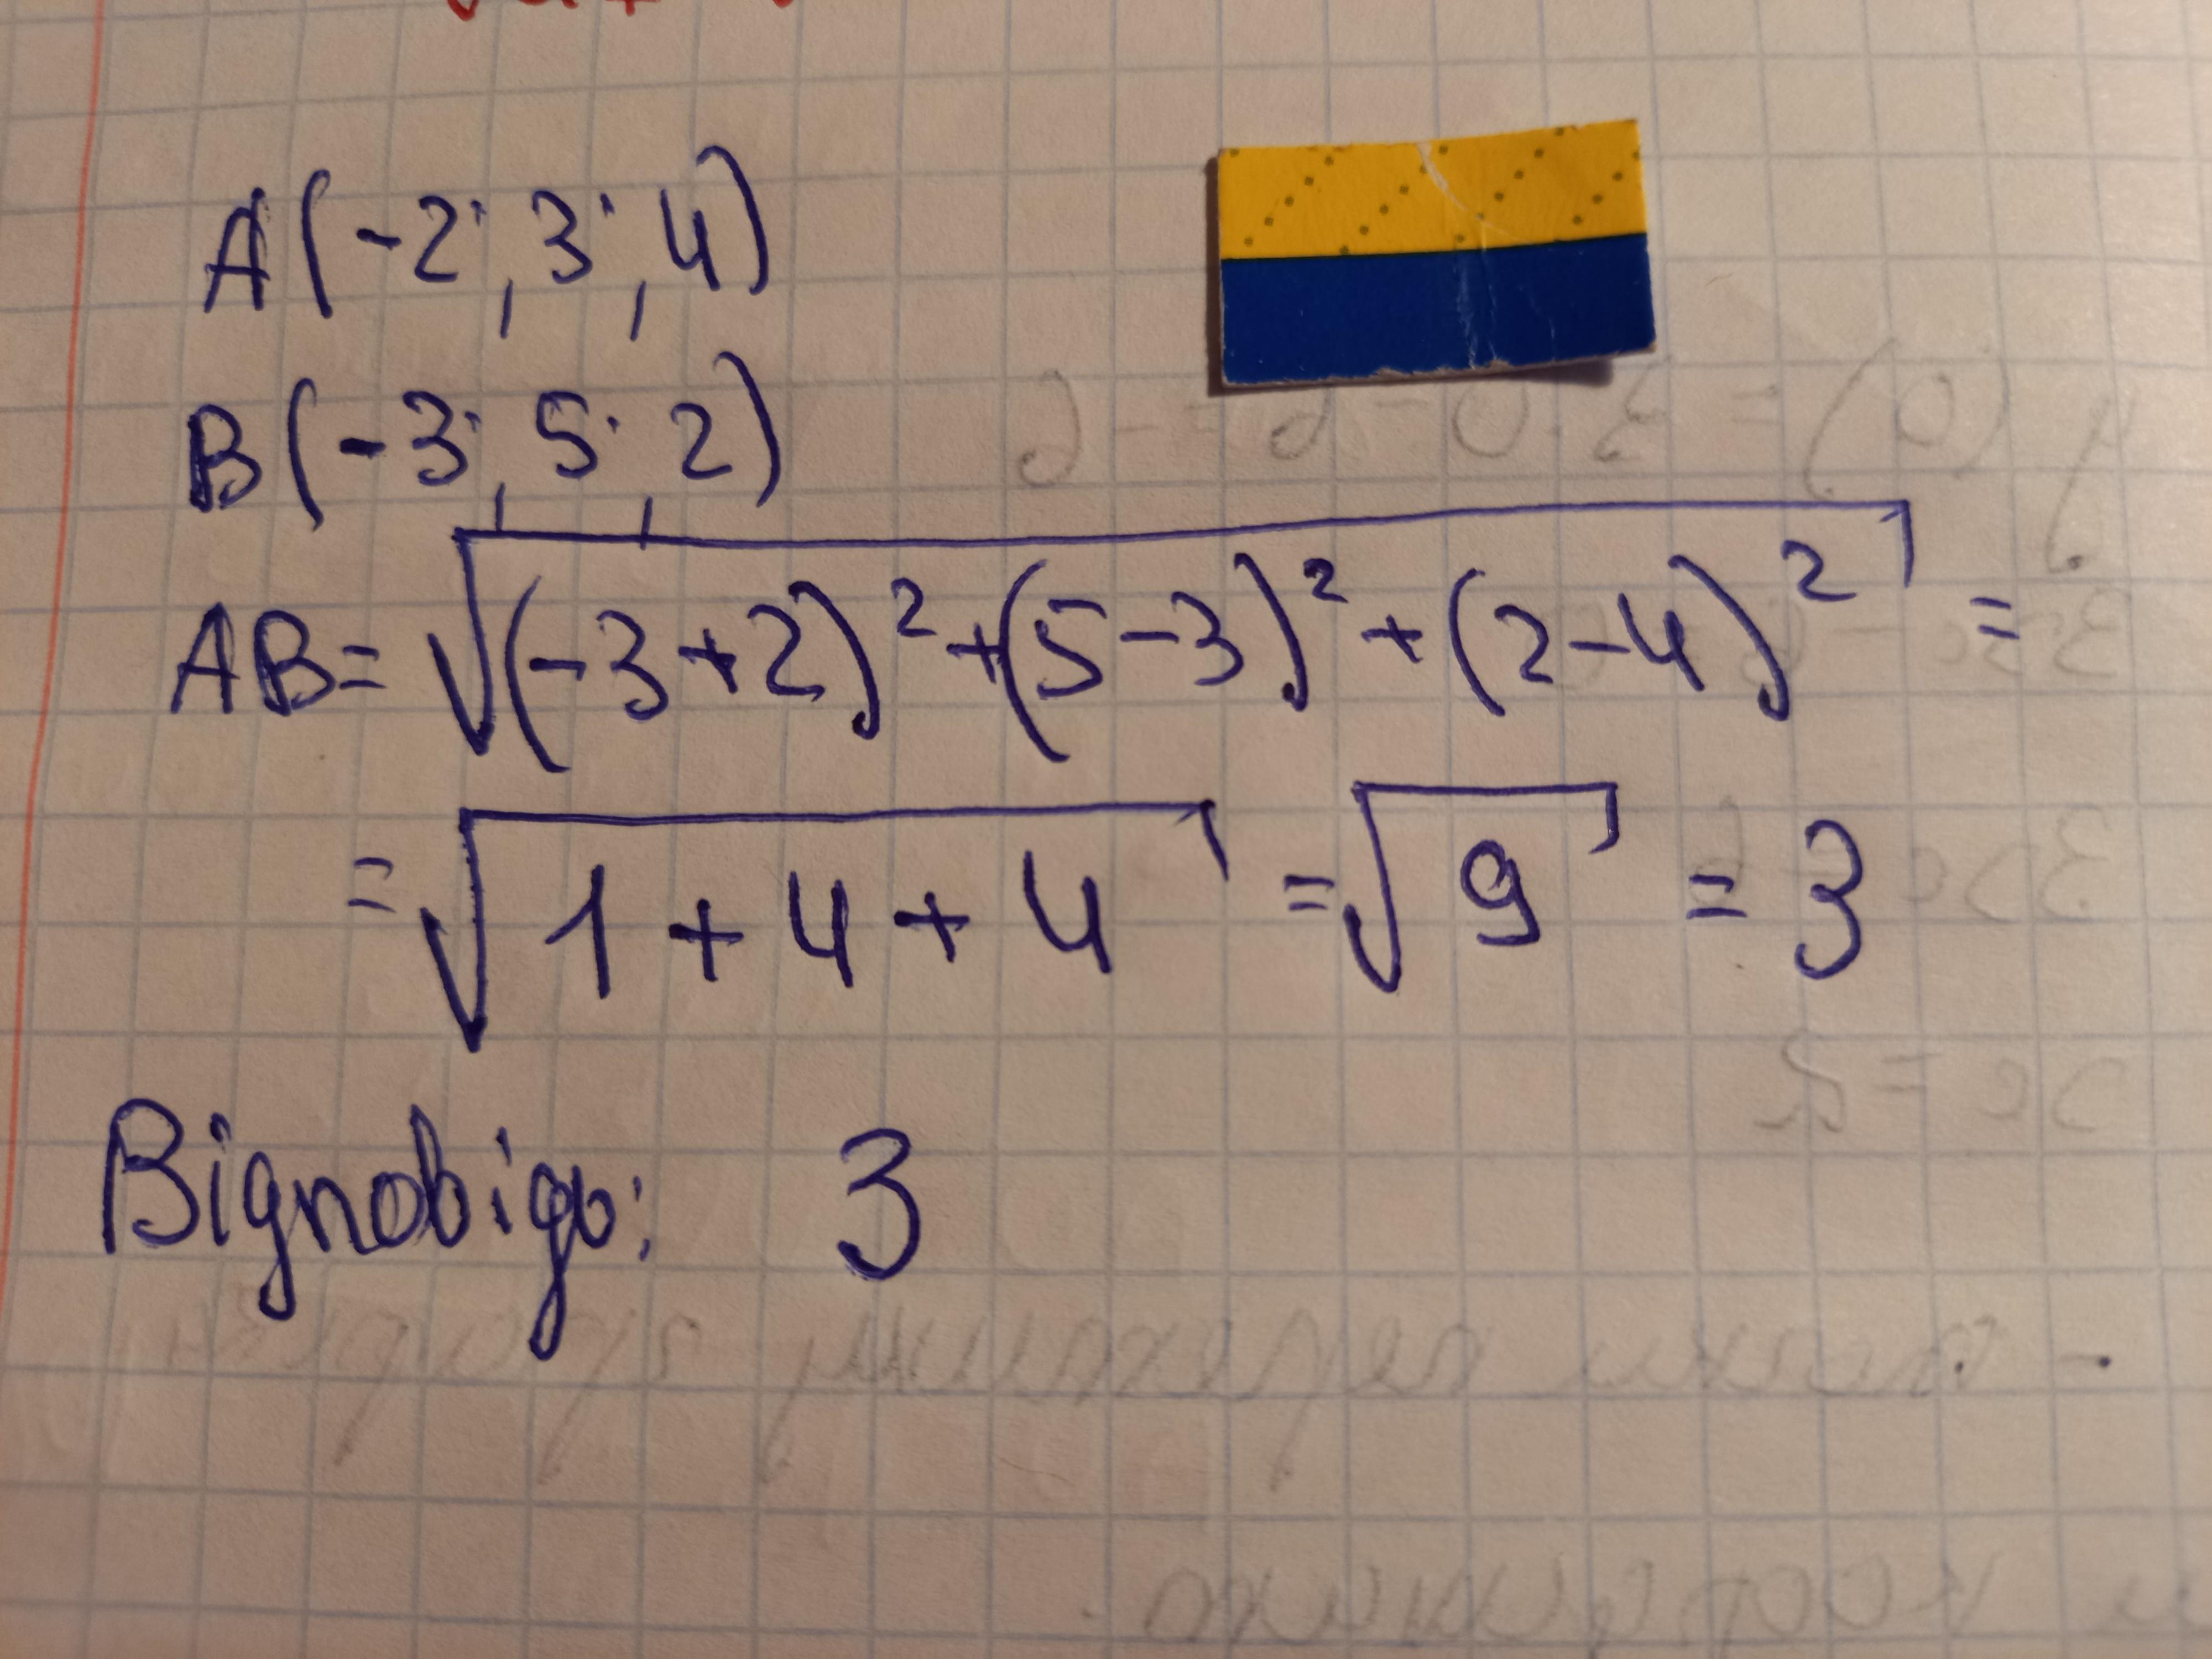 A(-2; 3; 4)
B(-3; 5; 2)
AB = √(-3+2)² + (5-3)² + (2-4)² =
= √1 + 4 + 4 = √9 = 3
Відповідь: 3